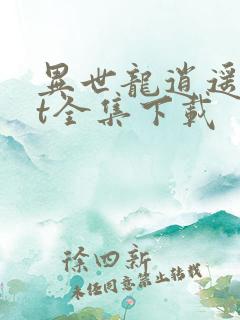 異世龍逍遥
t全集下载
徐四新
未经同意禁止转载